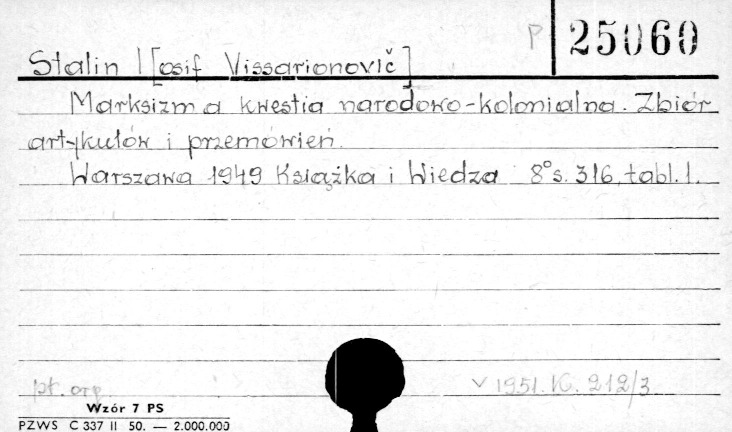 P 25060
Stalin I[osif Vissarionovič]
Marksizm a kwestia narodowo-kolonialna. Zbiór
artykułów i przemówień.
Warszawa 1949 Książka i Wiedza 8° s. 316, tabl. 1.
pt. org
V 1951. K. 212/3
Wzór 7 PS
PZWS C 337 II 50. — 2.000.000